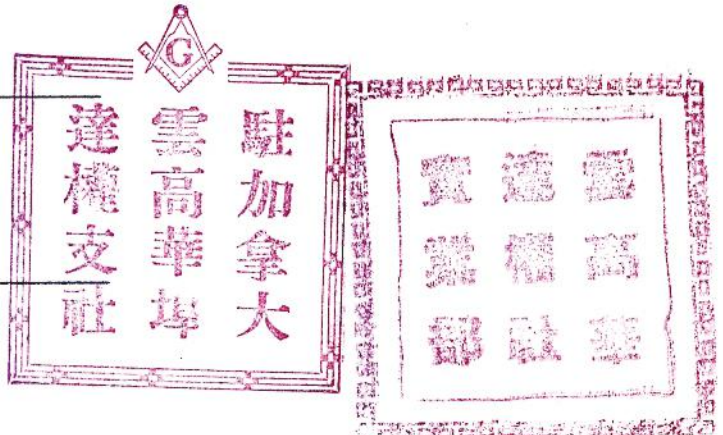 G
駐加拿大
雲高華埠
達權支社
雲高華
達權社
部